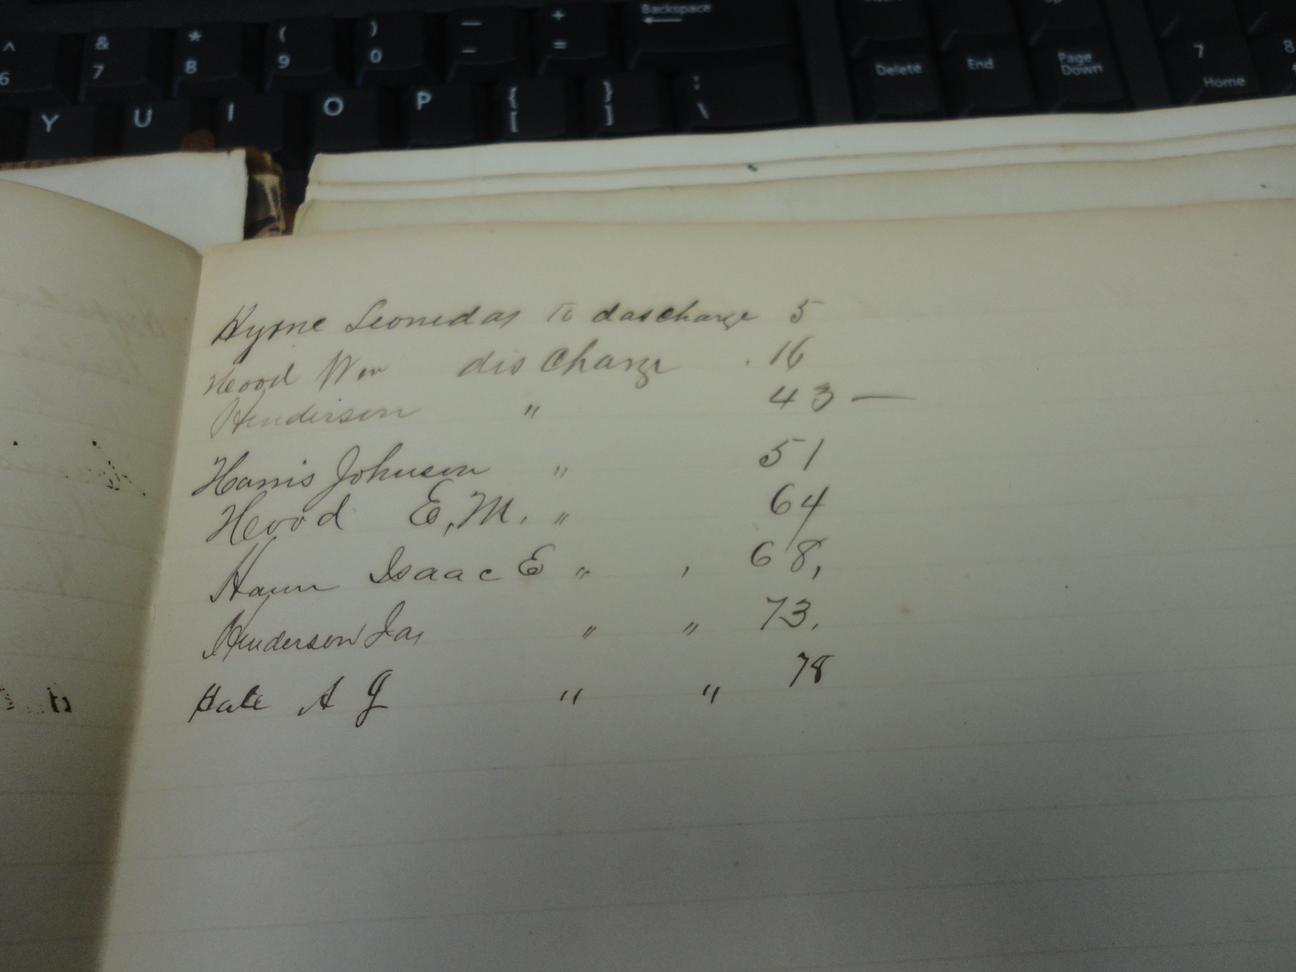 ^ & * ( ) — + Backspace
6 7 8 9 0 - = Delete End Page Down 7 Home 8
Y U I O P { [ } ] : \
Hyrne Leonidas To dascharge 5
Hood Wm discharge . 16
Henderson " 43 —
Harris Johnson " 51
Hood E, M. " 64
Haun Isaac E " , 68,
Henderson Jas " " 73.
Hale A G " " 78